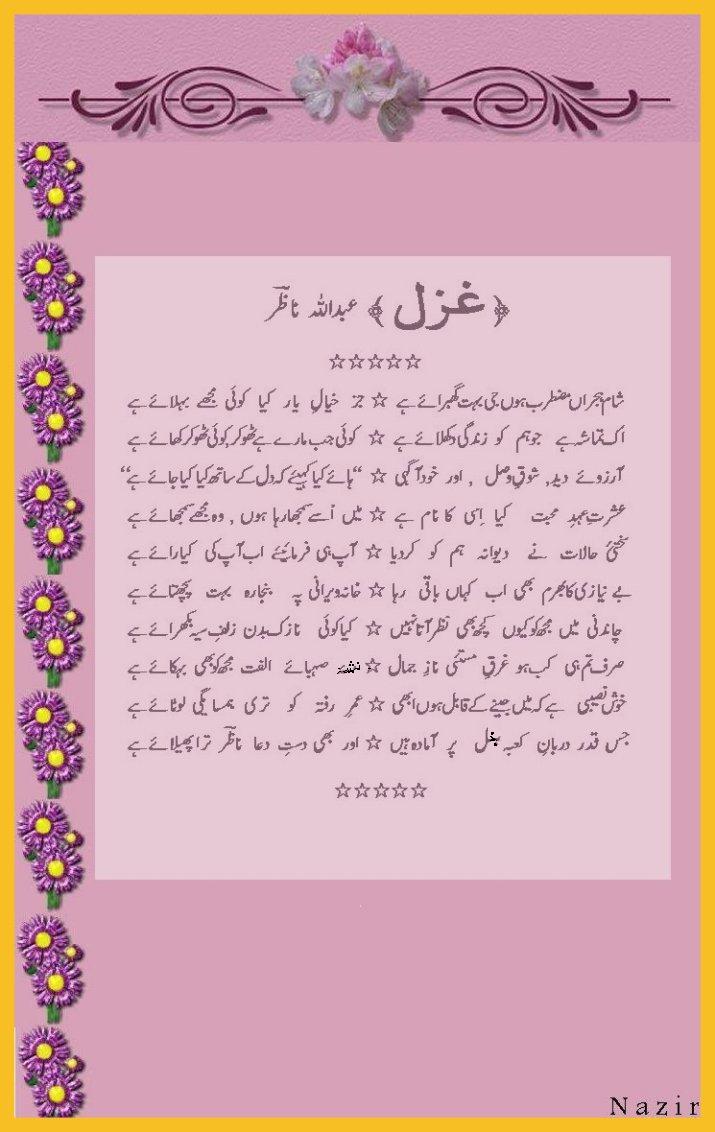 ﴿ غزل ﴾ عبداللہ ناظرؔ
☆☆☆☆☆
شامِ ہجراں مضطرب ہوں جی بہت گھبرائے ہے ☆ جز خیالِ یار کیا کوئی مجھے بہلائے ہے
اک تماشہ ہے جو ہم کو زندگی دکھلائے ہے ☆ کوئی جب مارے ہے ٹھوکر، کوئی ٹھوکر کھائے ہے
آرزوئے دید, شوقِ وصل , اور خود آگہی ☆ “ہائے کیا کہیئے کہ دل کے ساتھ کیا کیا جائے ہے“
عشرتِ عہدِ محبت کیا اِسی کا نام ہے ☆ میں اُسے سمجھا رہا ہوں , وہ مجھے سمجھائے ہے
سختئی حالات نے دیوانہ ہم کو کردیا ☆ آپ ہی فرمائیئے اب آپ کی کیا رائے ہے
بے نیازی کا بھرم بھی اب کہاں باقی رہا ☆ خانہ ویرانی پہ بنجارہ بہت پچھتائے ہے
چاندنی میں مجھ کو کیوں کچھ بھی نظر آتا نہیں ☆ کیا کوئی نازک بدن زلفِ سیہ بکھرائے ہے
صرف تم ہی کب ہو غرقِ مستئی نازِ جمال ☆ نشۂ صہبائے الفت مجھ کو بھی بہکائے ہے
خوش نصیبی ہے کہ میں جینے کے قابل ہوں ابھی ☆ عمرِ رفتہ کو تری ہمسایگی لوٹائے ہے
جس قدر دربانِ کعبہ بخل پر آمادہ ہیں ☆ اور بھی دستِ دعا ناظرؔ ترا پھیلائے ہے
☆☆☆☆☆
Nazir